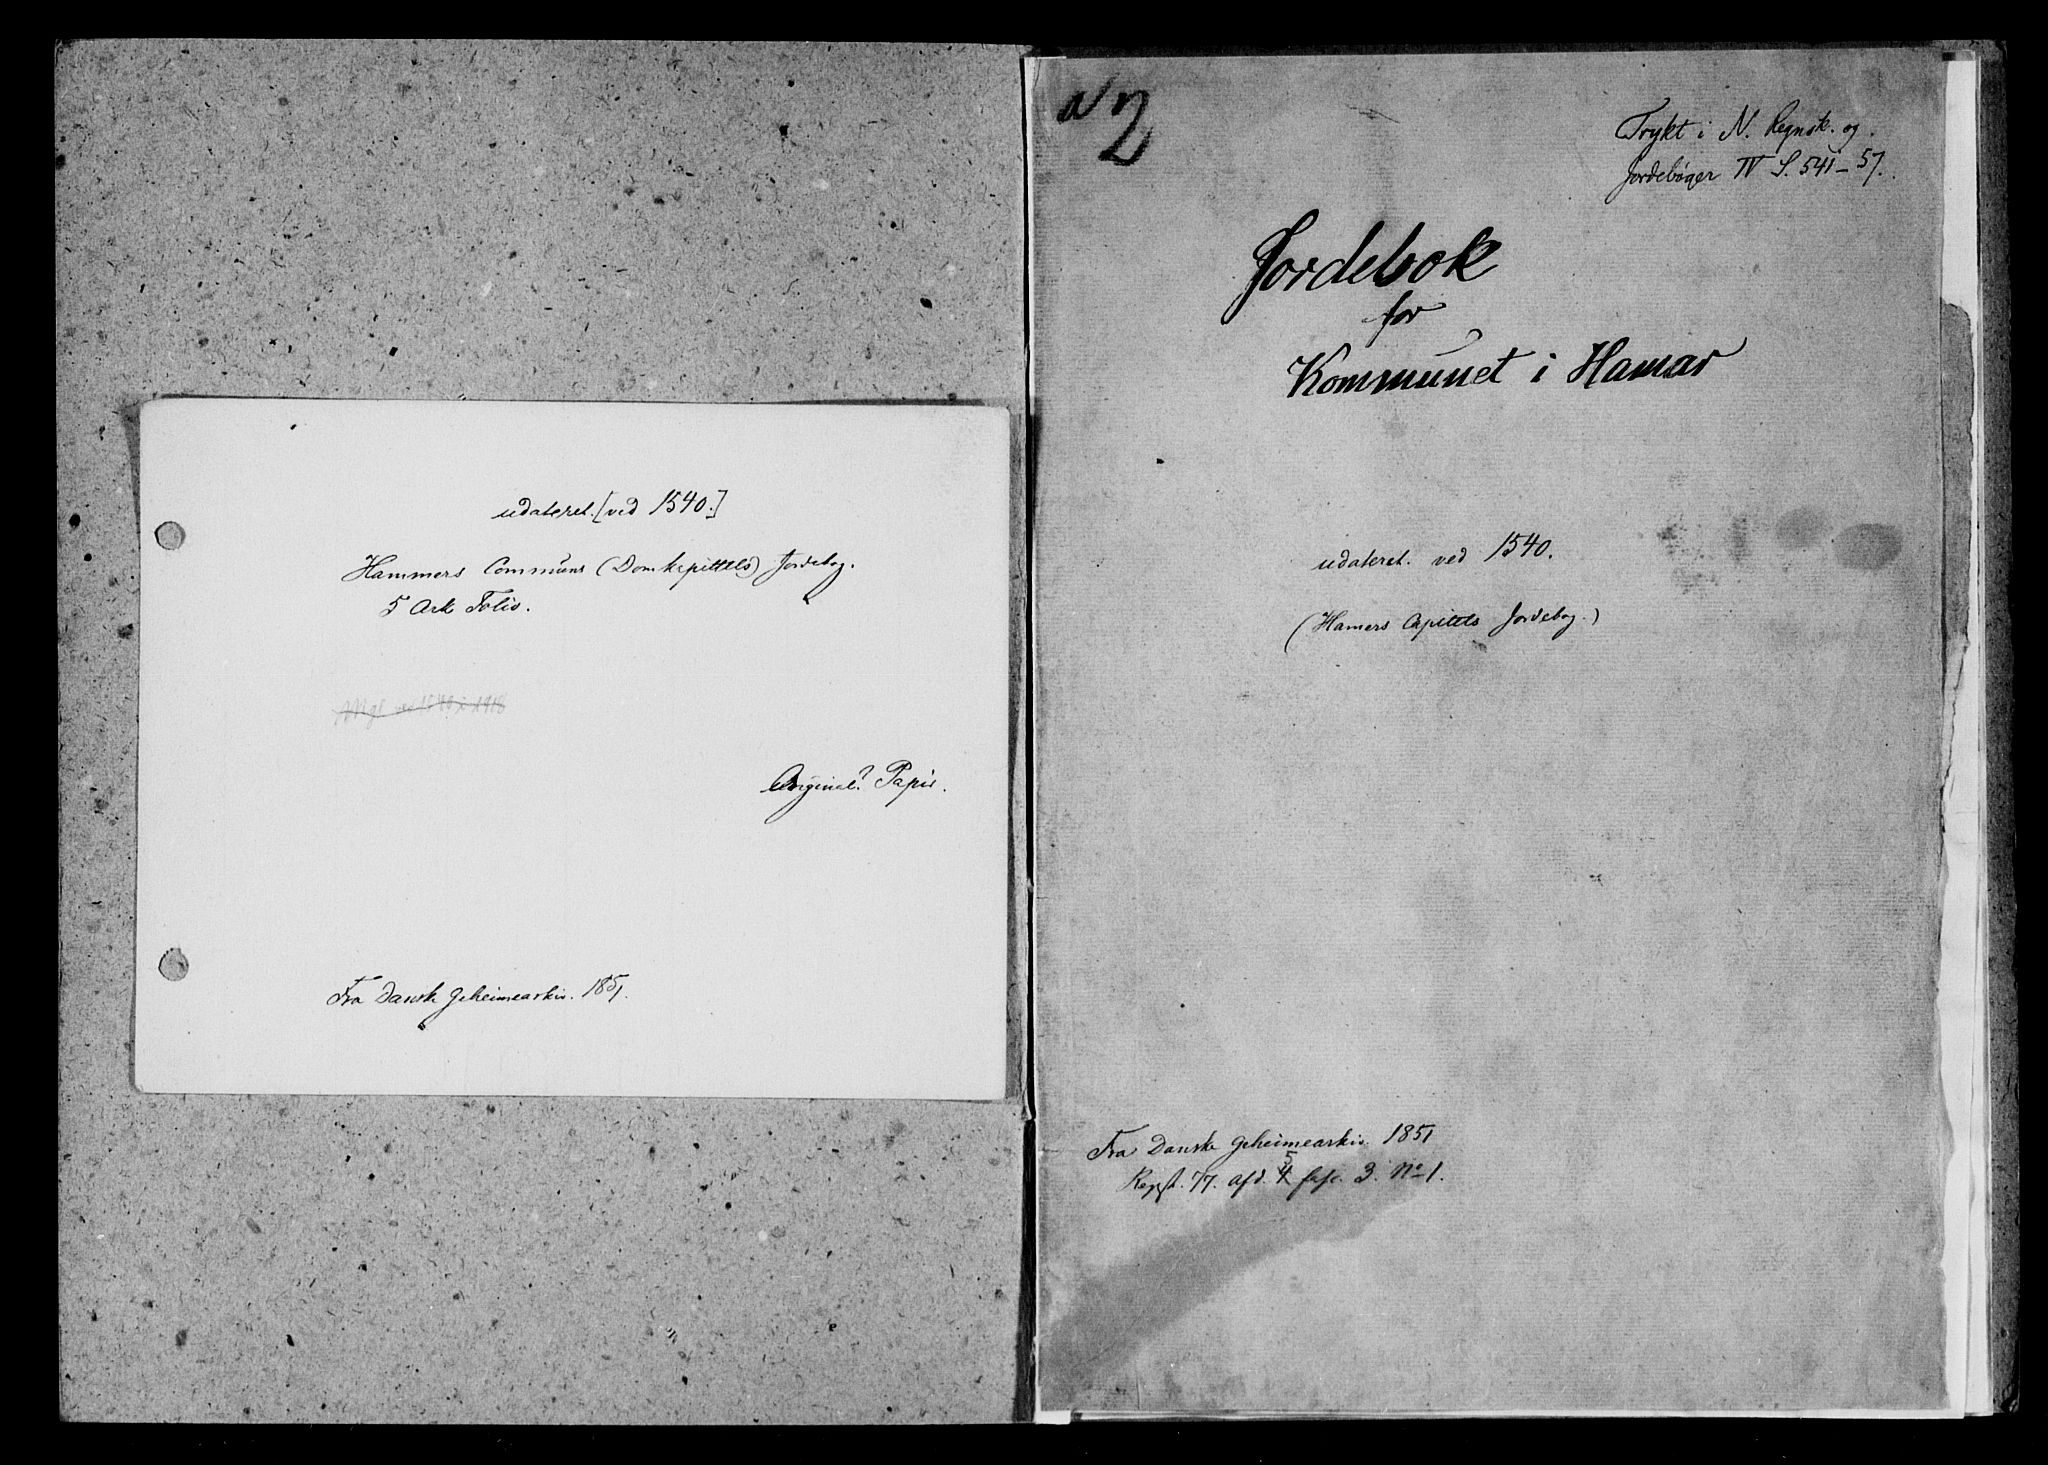 udateret. [ved 1540.]
Hammers Communs (Domkapittels) Jordebog.
5 Ark Folio.
Original? Papir.
Fra Danske Geheimearkiv. 1851.
a 2
Trykt i N. Regnsk. og
Jordebøger IV S. 541-57.
Jordebok
for
Kommunet i Hamar
udateret. ved 1540.
(Hamers Capitels Jordebog.)
Fra Danske Geheimearkiv. 1851
5
Regist. 77. afd. 4 fasc. 3. No 1.